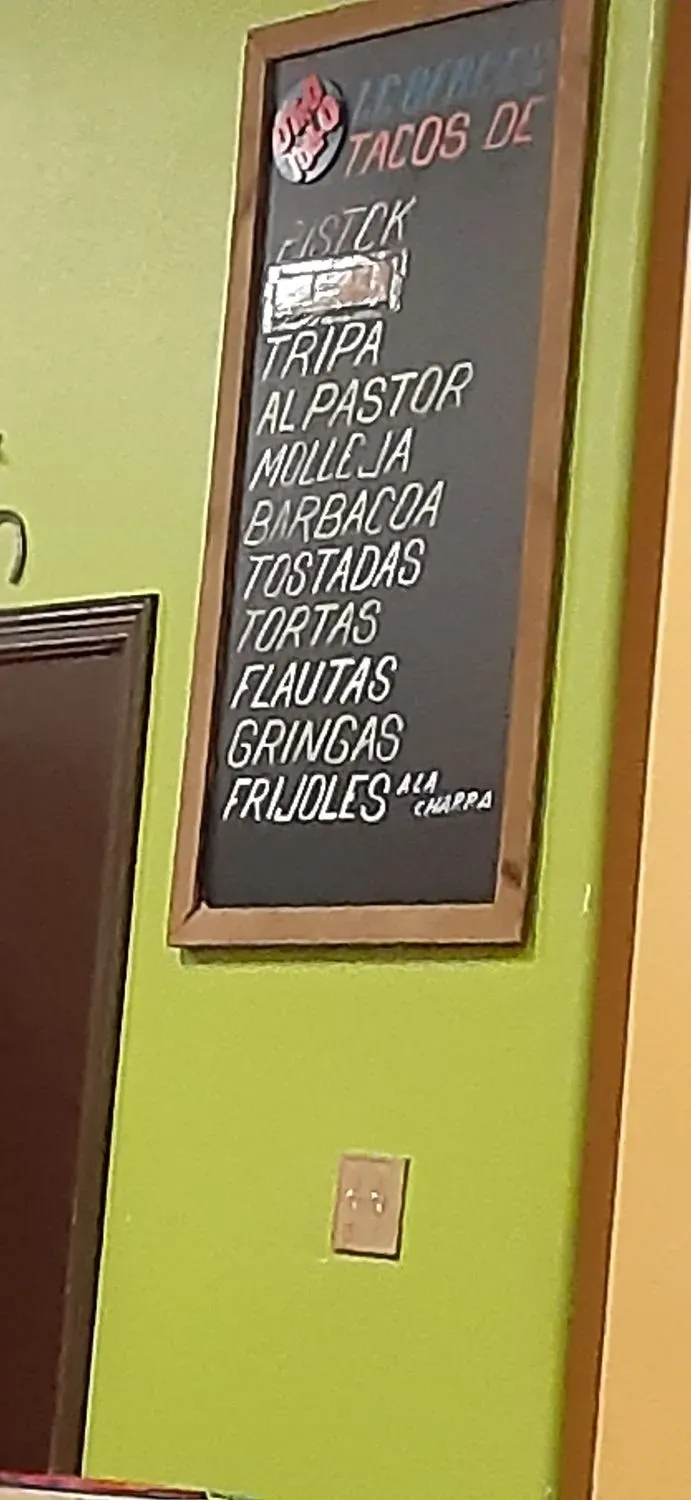 TACOS DE
BISTEK
TRIPA
AL PASTOR
MOLLEJA
BARBACOA
TOSTADAS
TORTAS
FLAUTAS
GRINGAS
FRIJOLES A LA
CHARRA